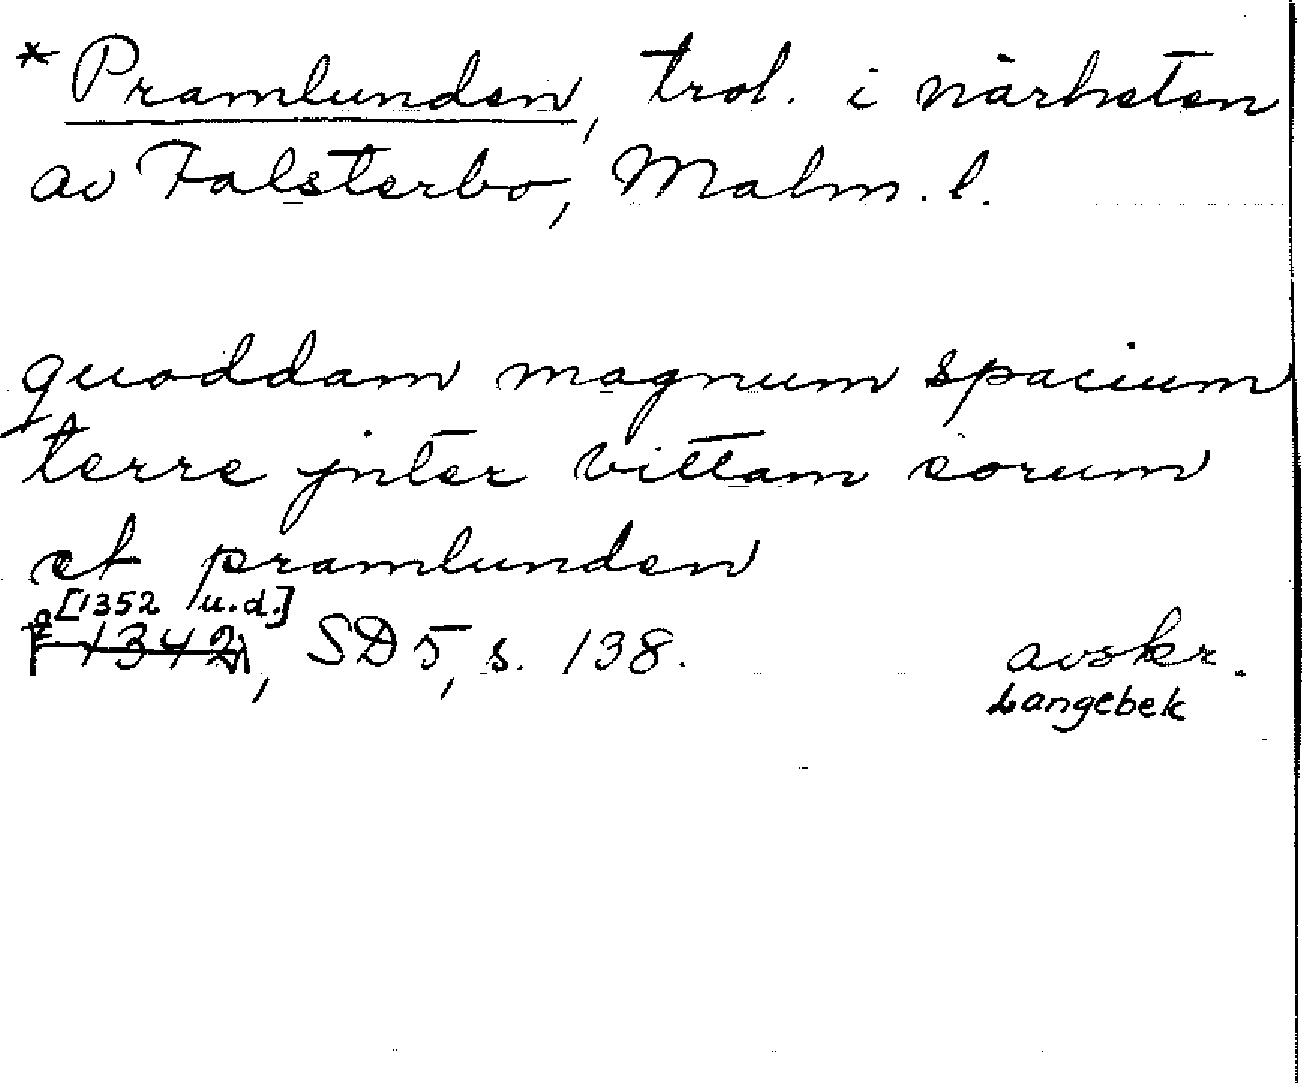 * Pramlunden, trol. i närheten
av Falsterbo, Malm. l.
quoddam magnum spacium
terre jnter vittam eorum
et pramlunden
[1352 u.d.]
1342, SD 5, s. 138. avskr.
Langebek